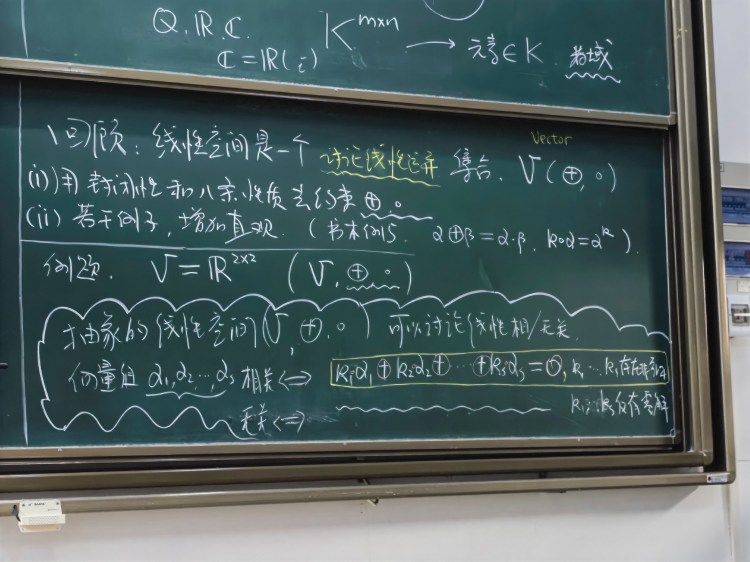 Q. R. C. K^{m×n} → 元素∈K 数域
C = R(i)
回顾：线性空间是一个 讨论线性运算 集合. Vector V(⊕, ∘)
(i) 用封闭性和八条性质去约束⊕, ∘
(ii) 若干例子，增加直观. (书本例5. α⊕β=α·β, k∘α=α^k).
例题. V = R^{2×2} (V, ⊕, ∘)
抽象的线性空间(V, ⊕, ∘) 可以讨论线性相/无关.
向量组 α₁, α₂ ..., αs 相关 ⇔ k₁∘α₁ ⊕ k₂∘α₂ ⊕ ... ⊕ ks∘αs = 0, k₁...ks存在非零解
无关 ⇔ k₁...ks仅有零解